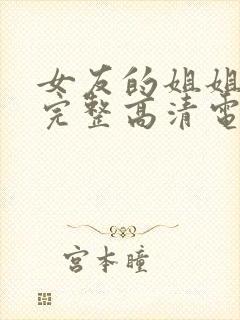 女友的姐姐
完整高清電
宫本瞳